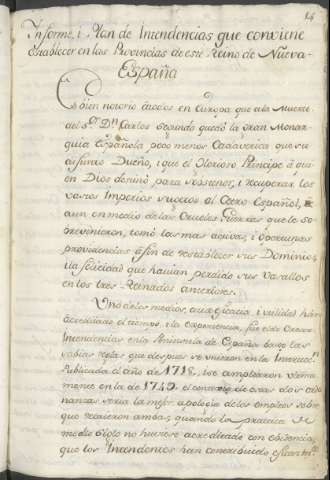 14
Informe, i Plan de Intendencias que conviene
establecer en las Provincias de este Reino de Nueva-
España
Es bien notorio á todos en Europa que á la Muerte
del Sr. Dn. Carlos Segundo quedó la Gran Monar-
quia Española poco menos Cadaverica que su
difunto Dueño, i que el Glorioso Principe á quien
Dios destinó para sostener, i recuperar los
vastos Imperios sugetos al Cetro Español,
aun en medio de las Crueles Guerras que le so-
brevinieron, tomó las mas activas, i oportunas
providencias á fin de restablecer sus Dominios,
i la felicidad que havian perdido sus Vasallos
en los tres Reinados anteriores.
Uno de los medios, cuya eficacia i utilidad hán
acreditado el tiempo, i la experiencia, fue el de crear
Intendencias en la Peninsula de España bajo las
sabias reglas que despues se vieron en la Instruccn.
Publicada el año de 1718, i se ampliaron ultima
mente en la de 1749. el contexto de estas dos orde
nanzas seria la mejor apologia de los empleos sobre
que recaieron ambas, quando la practica de
medio siglo no huviese acreditado con evidencia,
que los Intendentes han contribuido eficazmte.